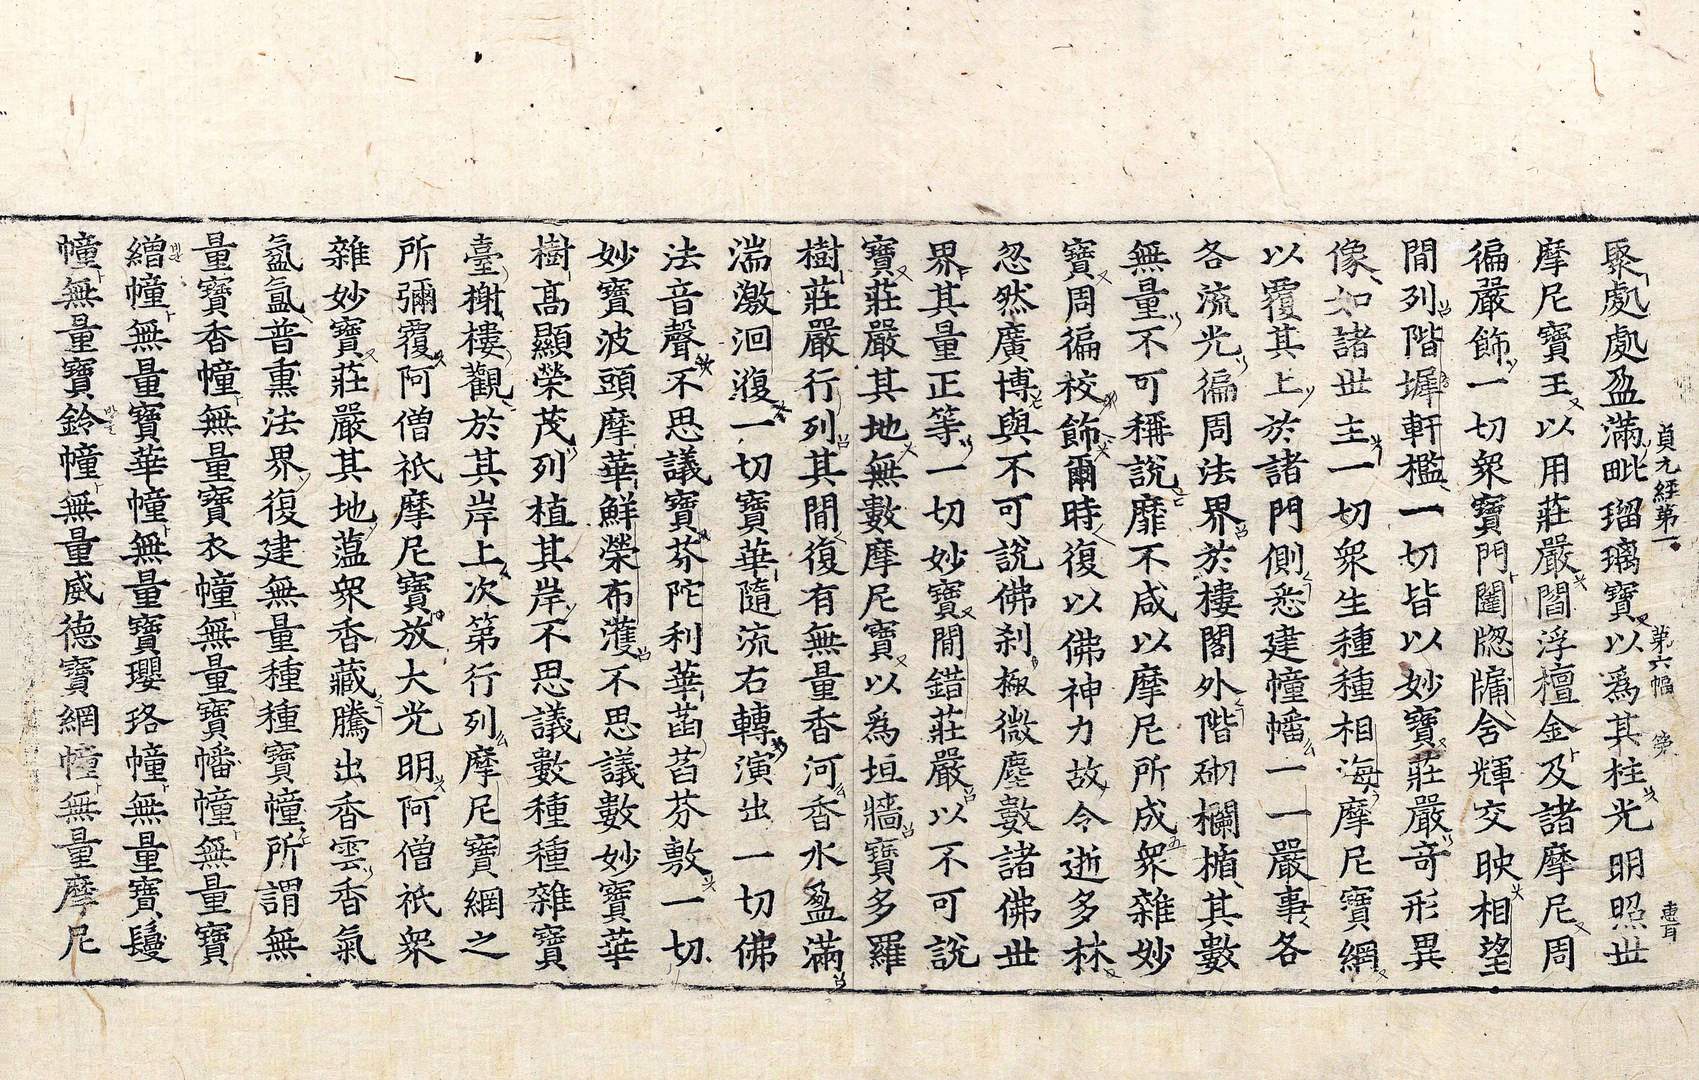 聚處處盈滿毗瑠璃寶以爲其柱光明照世
貞元經第一 第六幅 惠耳
摩尼寶王以用莊嚴閻浮檀金及諸摩尼周
徧嚴飾一切衆寶門闥牎牖含輝交映相望
間列階墀軒檻一切皆以妙寶莊嚴竒形異
像如諸世主一切衆生種種相海摩尼寶網
以覆其上於諸門側悉建幢幡一一嚴事各
各流光徧周法界於樓閣外階砌欄楯其數
無量不可稱說靡不咸以摩尼所成衆雜妙
寶周徧校飾爾時復以佛神力故令逝多林
忽然廣博與不可說佛刹極微塵數諸佛世
界其量正等一切妙寶間錯莊嚴以不可說
寶莊嚴其地無數摩尼寶以爲垣牆寶多羅
樹莊嚴行列其間復有無量香河香水盈滿
湍激洄澓一切寶華隨流右轉演出一切佛
法音聲不思議寶芬陀利華菡萏芬敷一切
妙寶波頭摩華鮮榮布濩不思議數妙寶華
樹髙顯榮茂列植其岸不思議數種種雜寶
臺榭樓觀於其岸上次第行列摩尼寶網之
所彌覆阿僧祇摩尼寶放大光明阿僧祇衆
雜妙寶莊嚴其地薀衆香藏騰出香雲香氣
氳氳普熏法界復建無量種種寶幢所謂無
量寶香幢無量寶衣幢無量寶幡幢無量寶
繒幢無量寶華幢無量寶瓔珞幢無量寶鬘
幢無量寶鈴幢無量威德寶網幢無量摩尼